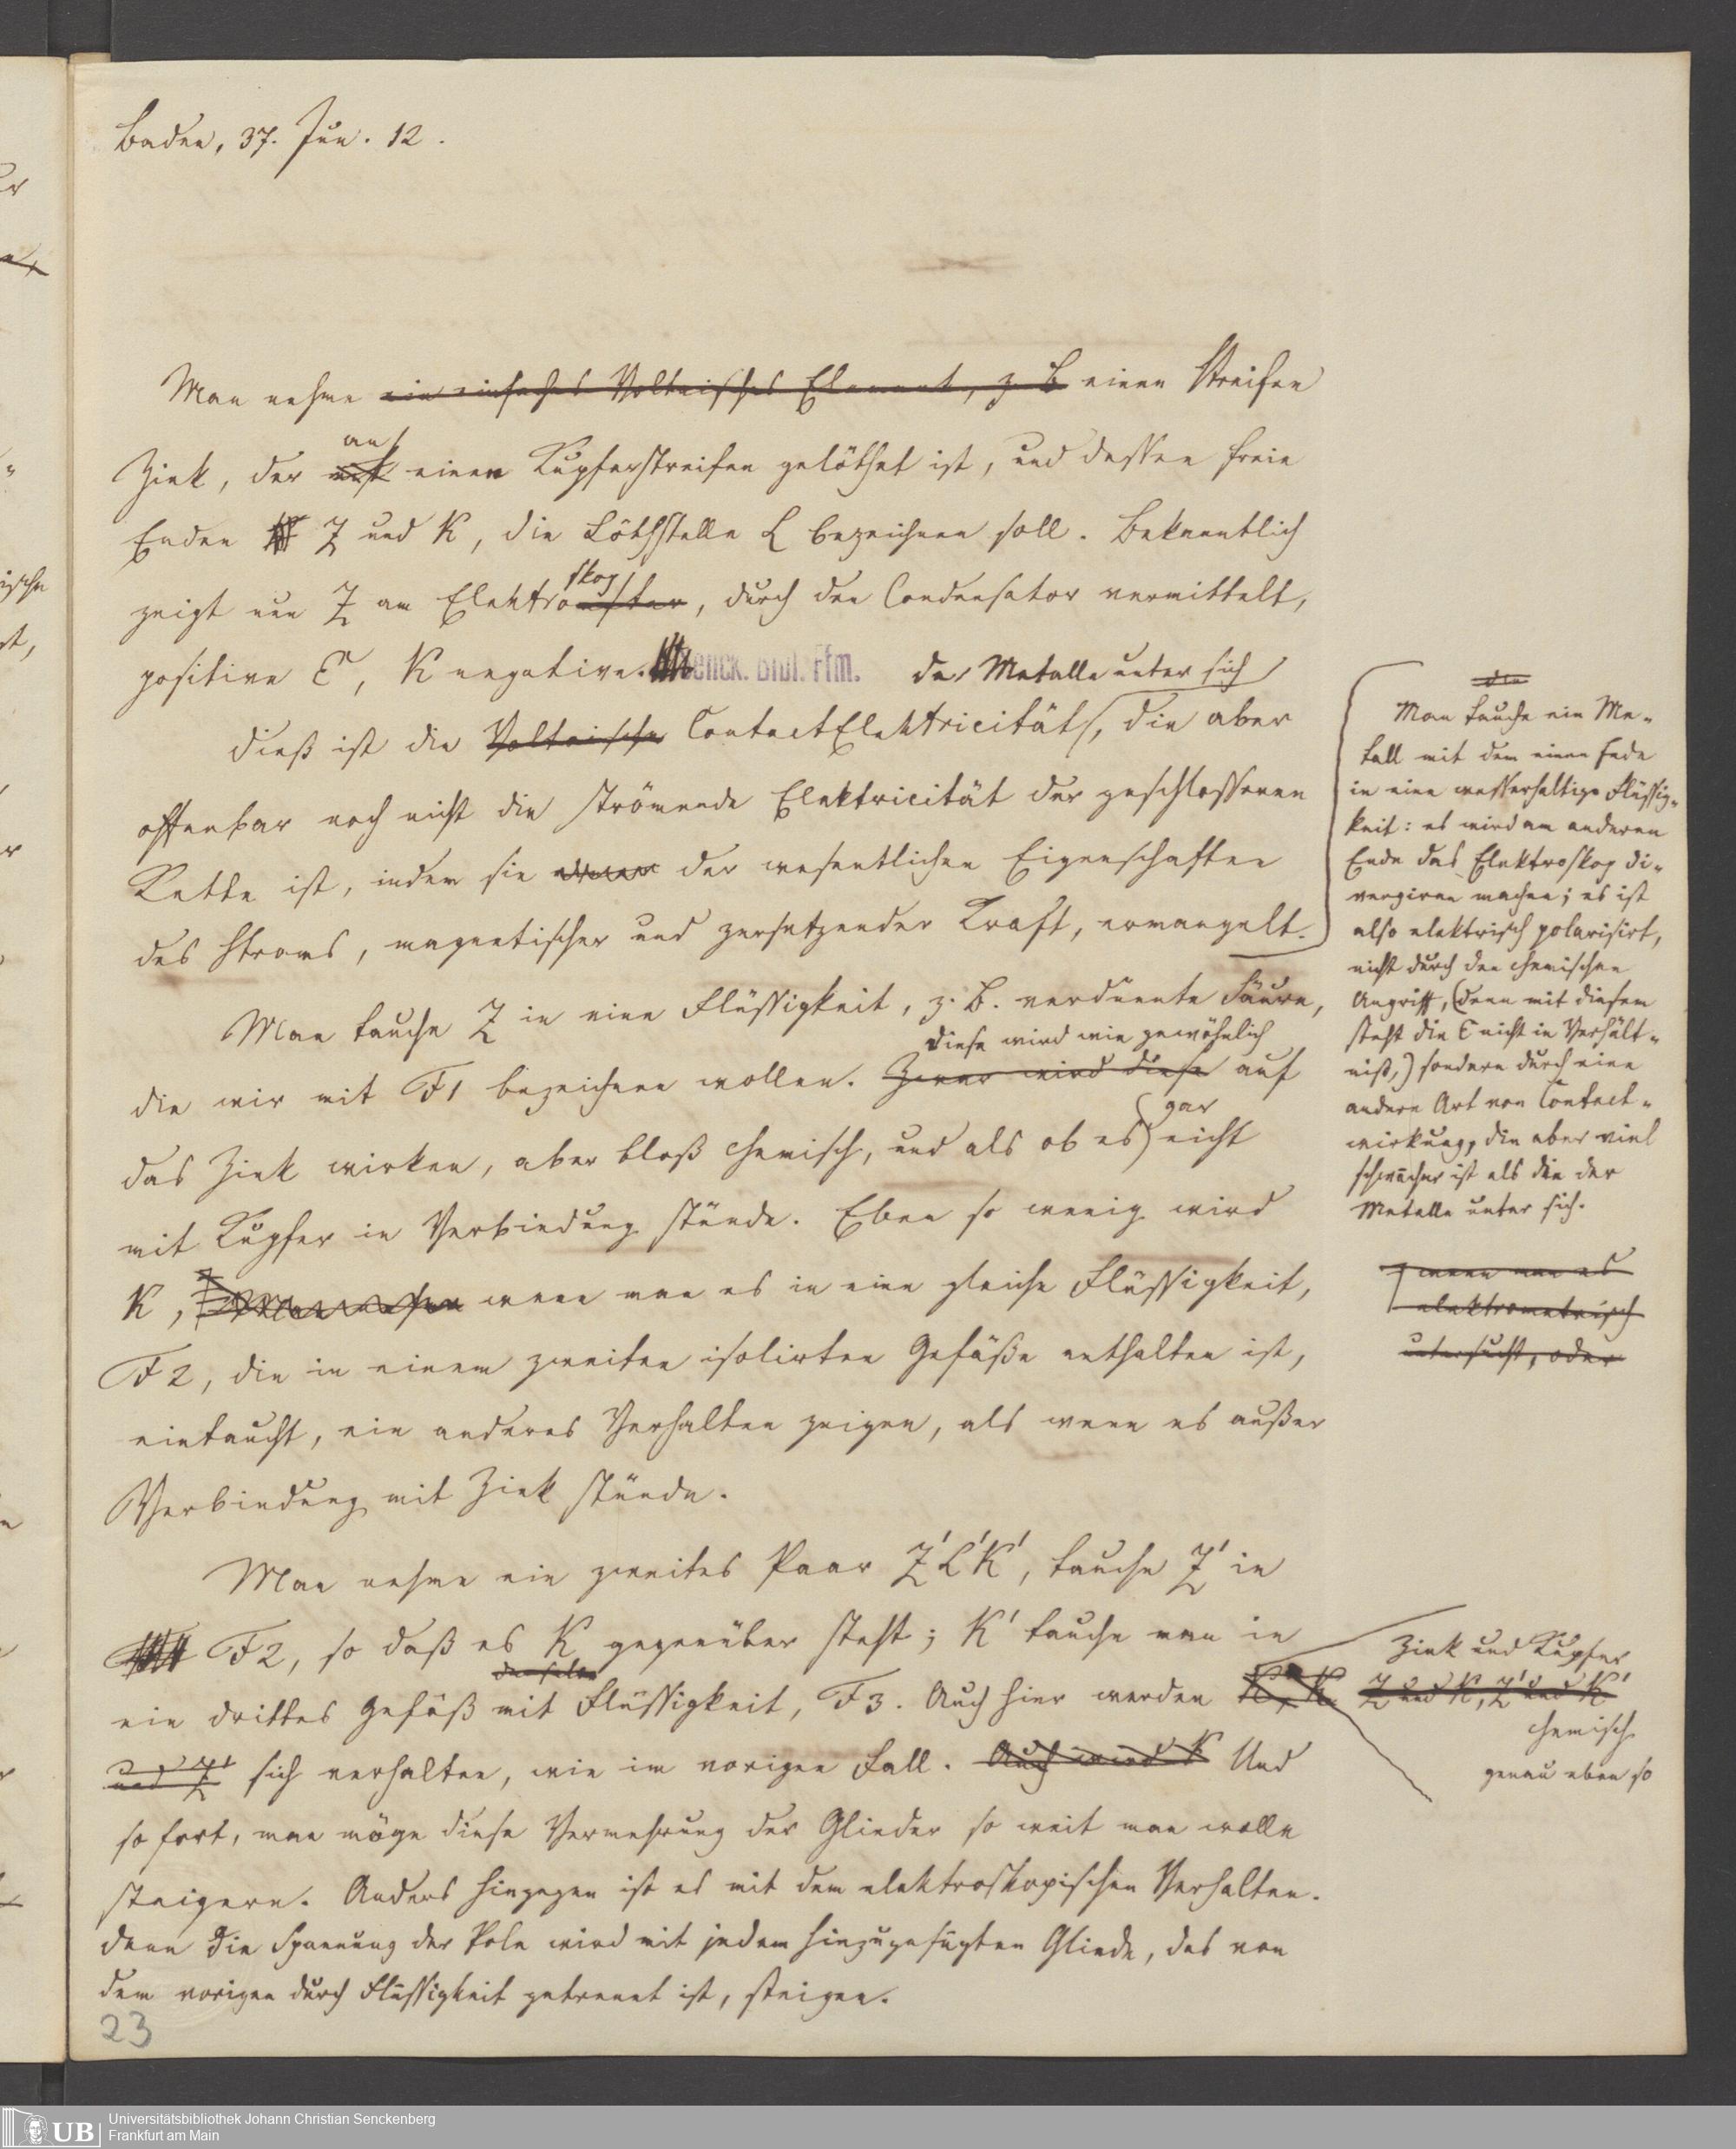 Baden, 37. Jun. 12.
Man nehme ein einfaches Voltaisches Element, z. B einen Streifen
an
Zink, der mit einen Kupferstreifen gelöthet ist, und dessen freie
Enden Z und K, die Löthstelle L bezeichnen soll. Bekanntlich
skop
zeigt nun Z am Elektrometer, durch den Condensator vermittelt,
positive E, K negative.
Senck. Bibl. Ffm.
der Metalle unter sich
Dieß ist die Voltaische ContactElektricität, die aber
offenbar noch nicht die strömende Elektricität der geschlossenen
Kette ist, indem sie der wesentlichen Eigenschaften
des Stroms, magnetischer und zersetzender Kraft, ermangelt.
Man tauche Z in eine Flüssigkeit, z. B. verdünnte Säure,
diese wird wie gewöhnlich
die wir mit F1 bezeichnen wollen. Zwar wird diese auf
gar
das Zink wirken, aber bloß chemisch, und als ob es nicht
mit Kupfer in Verbindung stünde. Eben so wenig wird
K, wenn man es in eine gleiche Flüssigkeit,
F2, die in einem zweiten isolirten Gefäße enthalten ist,
eintaucht, ein anderes Verhalten zeigen, als wenn es außer
Verbindung mit Zink stünde.
Man nehme ein zweites Paar Z'L'K', tauche Z' in
F2, so daß es K gegenüber steht; K' tauche man in
derselben
ein drittes Gefäß mit Flüssigkeit, F3. Auch hier werden K, K
und Z' sich verhalten, wie im vorigen Fall. Auch wird K Und
so fort, man möge diese Vermehrung der Glieder so weit man wolle
steigern. Anders hingegen ist es mit dem elektroskopischen Verhalten.
denn Die Spannung der Pole wird mit jedem hinzugefügten Gliede, das von
dem vorigen durch Flüssigkeit getrennt ist, steigen.
23
die
Man tauche ein Me-
tall mit dem einen Ende
in eine wasserhaltige Flüssig-
keit: es wird am anderen
Ende das Elektroskop di-
vergiren machen; es ist
also elektrisch polarisirt,
nicht durch den chemischen
Angriff, (denn mit diesem
steht die E nicht in Verhält-
niß,) sondern durch eine
andere Art von Contact-
wirkung, die aber viel
schwächer ist als die der
Metalle unter sich.
wenn man es
elektrometrisch
untersucht, oder
Zink und Kupfer
Z und K, Z' und K'
chemisch
genau eben so
Universitätsbibliothek Johann Christian Senckenberg
Frankfurt am Main
UB